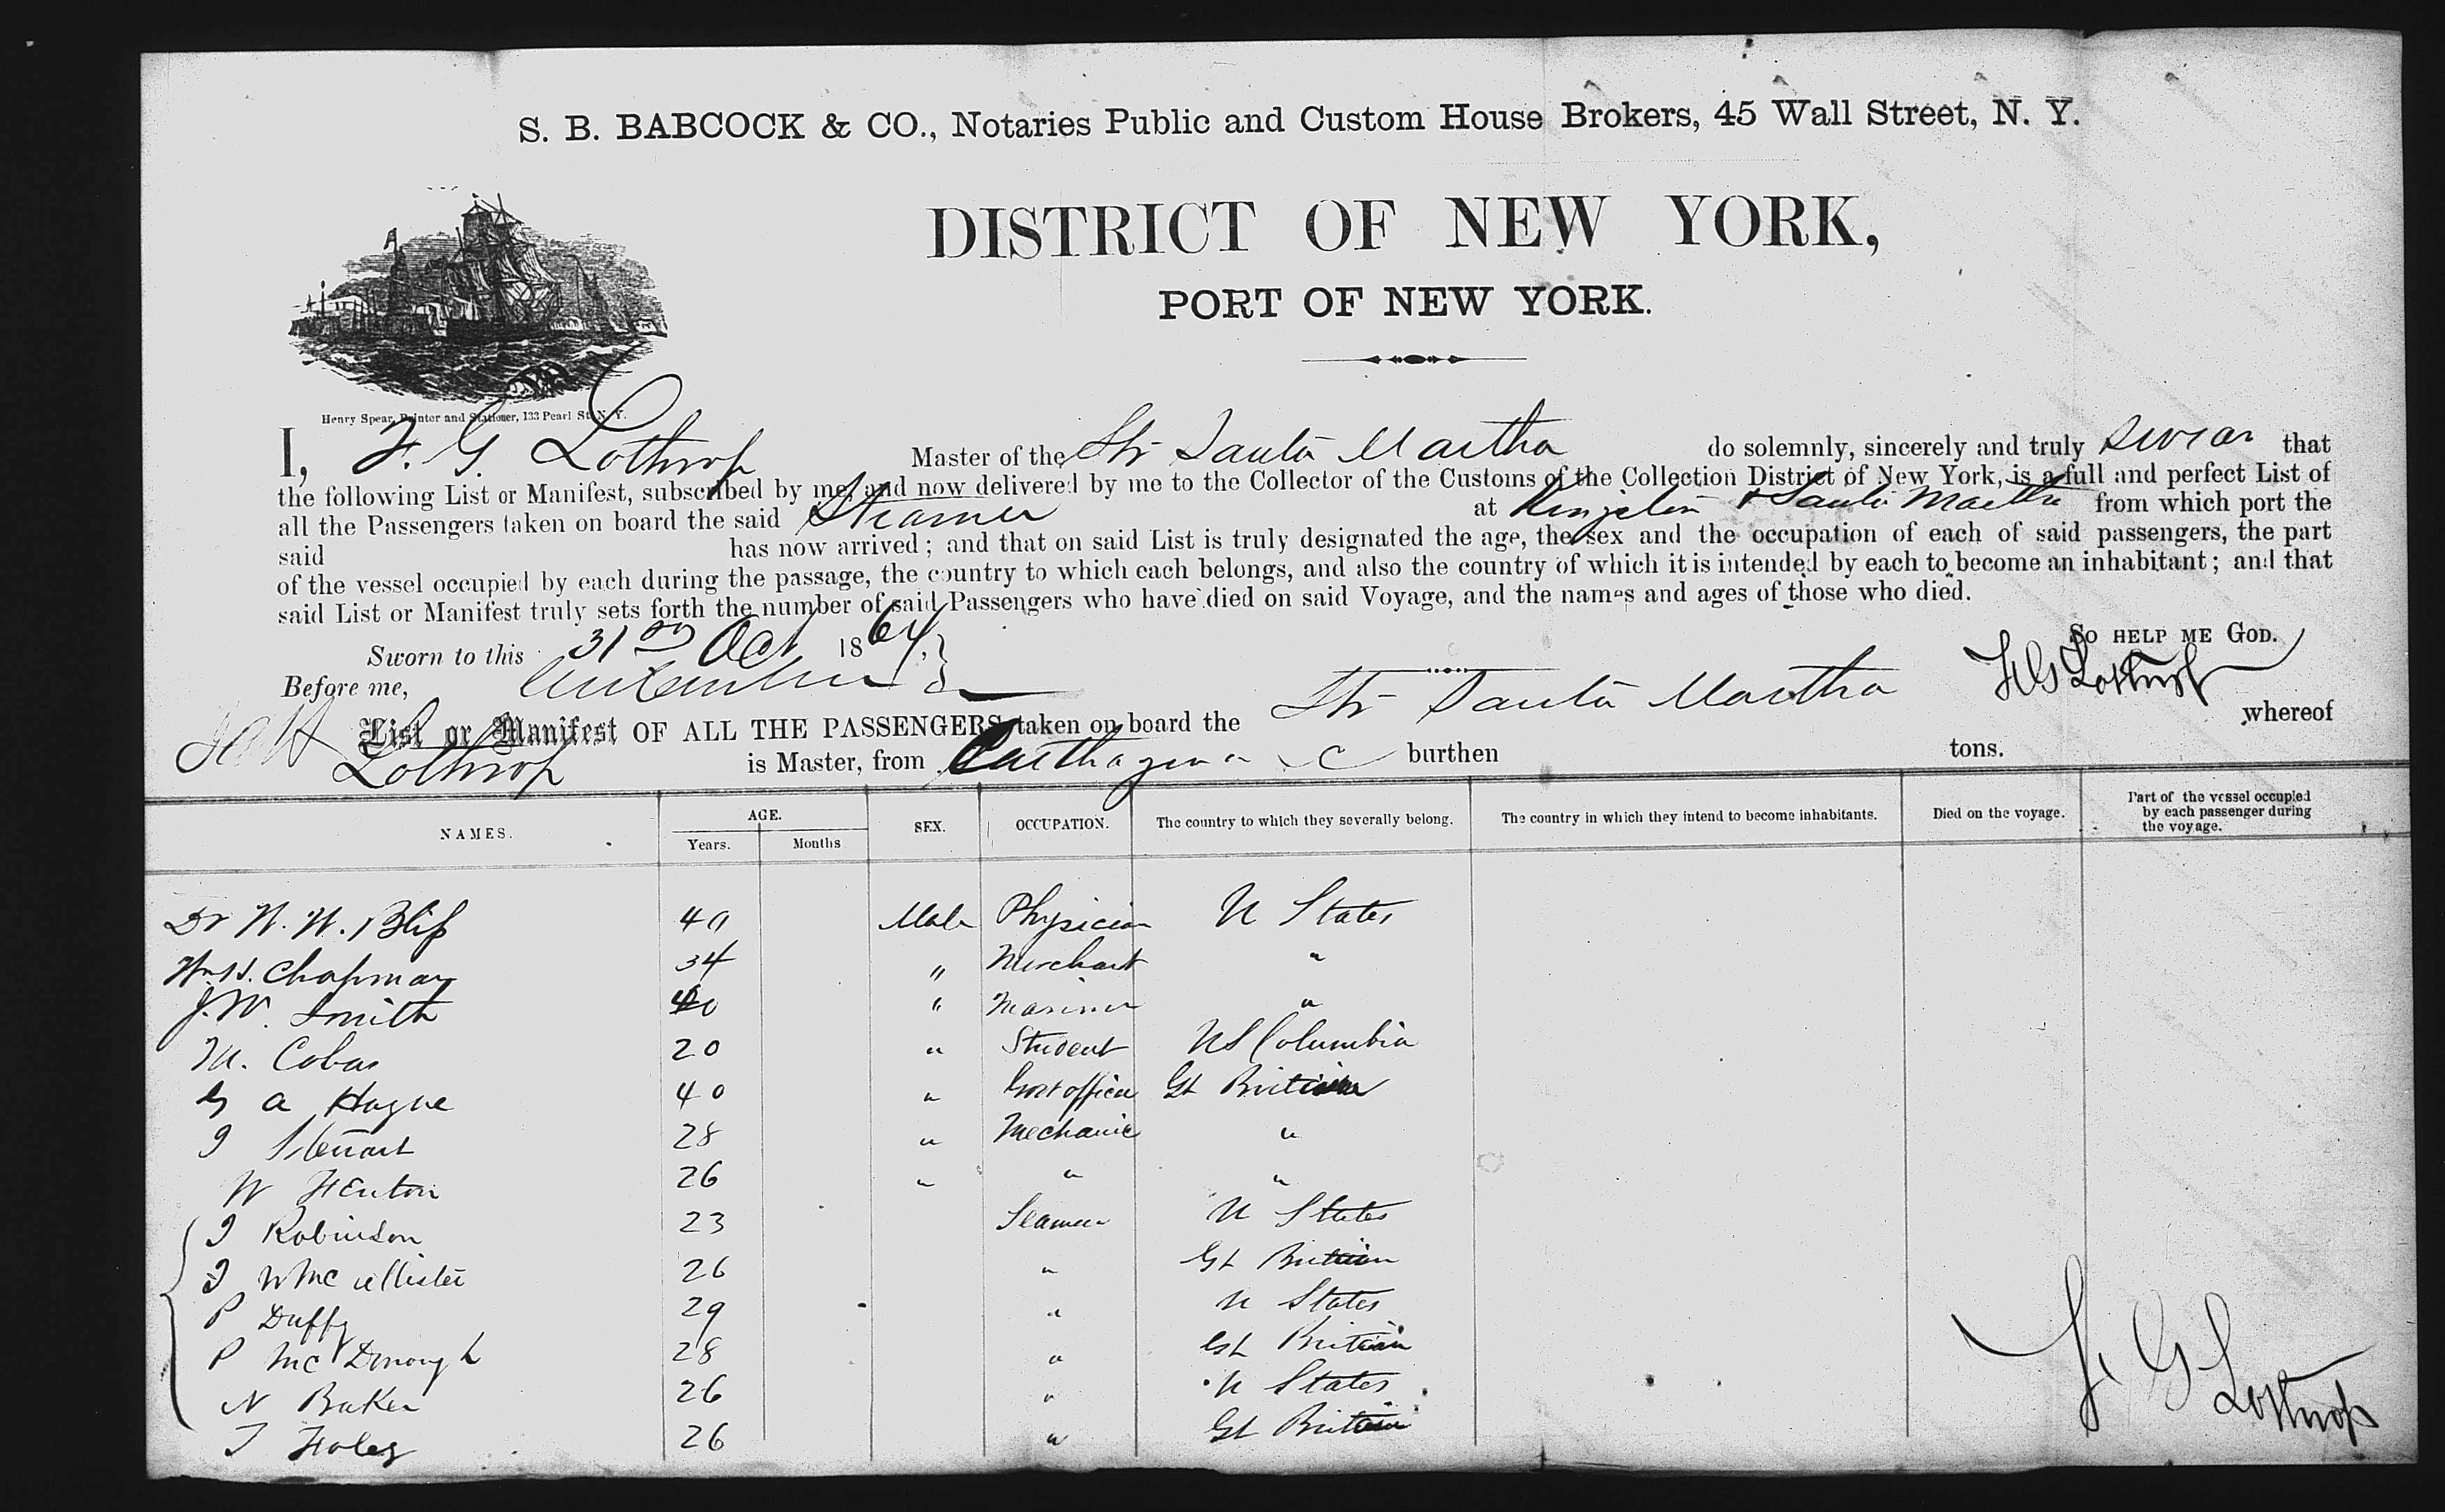 S. B. BABCOCK & CO., Notaries Public and Custom House Brokers, 45 Wall Street, N. Y.
DISTRICT OF NEW YORK,
PORT OF NEW YORK.
Henry Spear, Printer and Stationer, 133 Pearl St. N. Y.
I, F. G. Lothrop Master of the Str Santa Martha do solemnly, sincerely and truly swear that
the following List or Manifest, subscribed by me, and now delivered by me to the Collector of the Customs of the Collection District of New York, is a full and perfect List of
all the Passengers taken on board the said Steamer at Kingston & Santa Martha from which port the
said has now arrived; and that on said List is truly designated the age, the sex and the occupation of each of said passengers, the part
of the vessel occupied by each during the passage, the country to which each belongs, and also the country of which it is intended by each to become an inhabitant; and that
said List or Manifest truly sets forth the number of said Passengers who have died on said Voyage, and the names and ages of those who died.
So HELP ME GOD.
Sworn to this 31 Oct 1864,
Before me, F G Lothrop
List or Manifest OF ALL THE PASSENGERS taken on board the Str Santa Martha whereof
Lothrop is Master, from Carthagena burthen tons.
NAMES. AGE. Years. Months SEX. OCCUPATION. The country to which they severally belong. The country in which they intend to become inhabitants. Died on the voyage. Part of the vessel occupied by each passenger during the voyage.
Dr W. W. Bliss 40 Male Physician U States
Wm H. Chapman 34 " Merchant "
J. W. Smith 40 " Mariner "
M. Cobas 20 " Student US Columbia
G A Hague 40 " Govt officer Gt Britain
J Stewart 28 " Mechanic "
W Fenton 26 " " "
J Robinson 23 Seamen U States
J W McAllister 26 " Gt Britain
P Duffy 29 " U States
P McDonough 28 " Gt Britain
N Baker 26 " U States
T Foley 26 " Gt Britain
F. G Lothrop